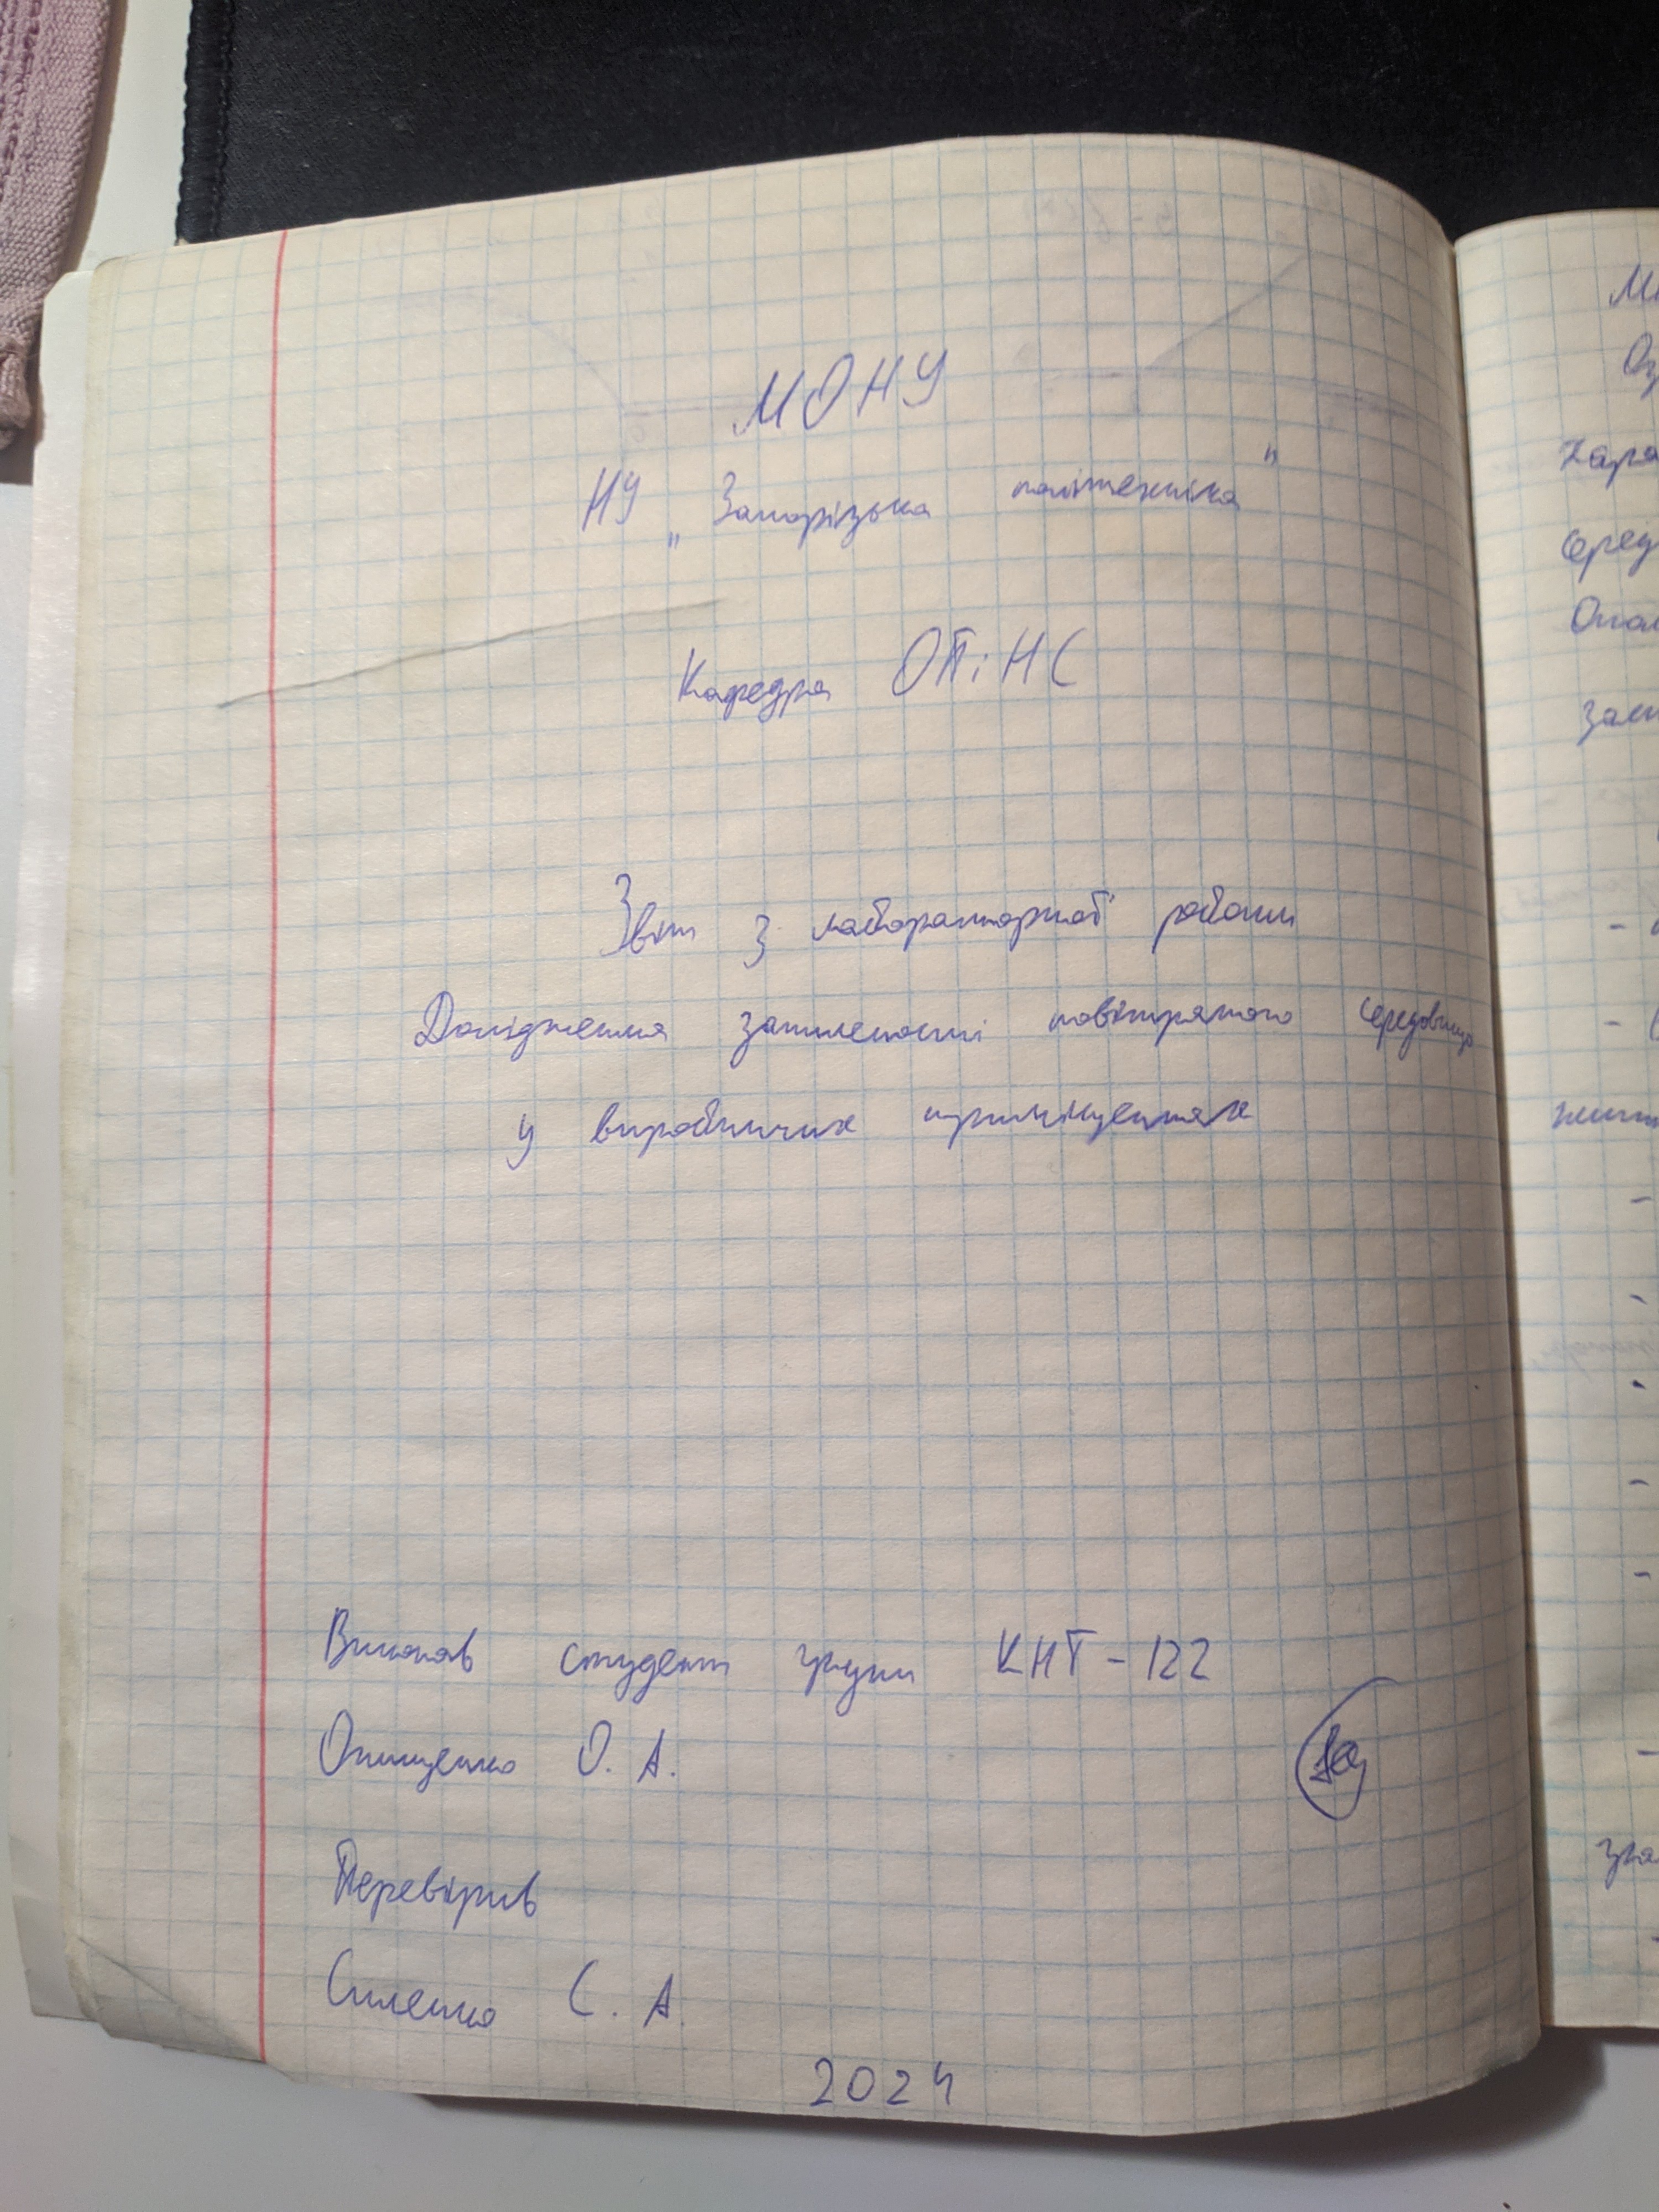 МОНУ
НУ „Запорізька політехніка"
Кафедра ОПіНС
Звіт з лабораторної роботи
Дослідження запиленості повітряного середовища
у виробничих приміщеннях
Виконав студент групи КНТ-122
Онищенко О. А.
Перевірив
Скленко С. А.
2024